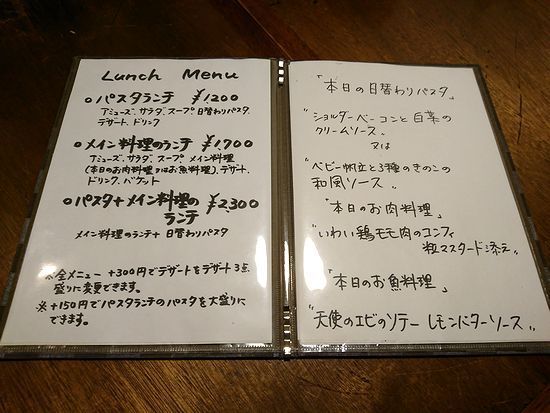 Lunch Menu
○パスタランチ ¥1,200
アミューズ、サラダ、スープ、日替わりパスタ
デザート、ドリンク
○メイン料理のランチ ¥1,700
アミューズ、サラダ、スープ、メイン料理
(本日のお肉料理又はお魚料理)、デザート、
ドリンク、バケット
○パスタ+メイン料理の
ランチ ¥2,300
メイン料理のランチ+日替わりパスタ
※全メニュー +300円でデザートをデザート3点
盛りに変更できます。
※ +150円でパスタランチのパスタを大盛りに
できます。
「本日の日替わりパスタ」
"ショルダーベーコンと白菜の
クリームソース"
又は
"ベビー帆立と3種のきのこの
和風ソース"
「本日のお肉料理」
"いわい鶏モモ肉のコンフィ
粒マスタード添え"
「本日のお魚料理」
"天使のエビのソテー レモンバターソース"